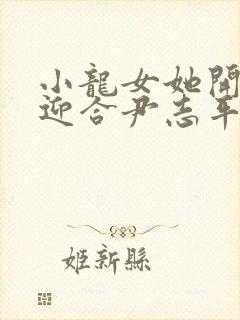 小龍女她開
迎合尹志平
姬新縣